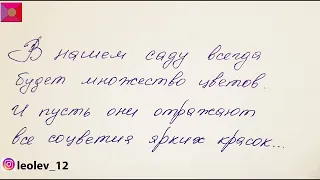 В нашем саду всегда
будет множество цветов.
И пусть они отражают
все соцветия ярких красок...
leolev_12